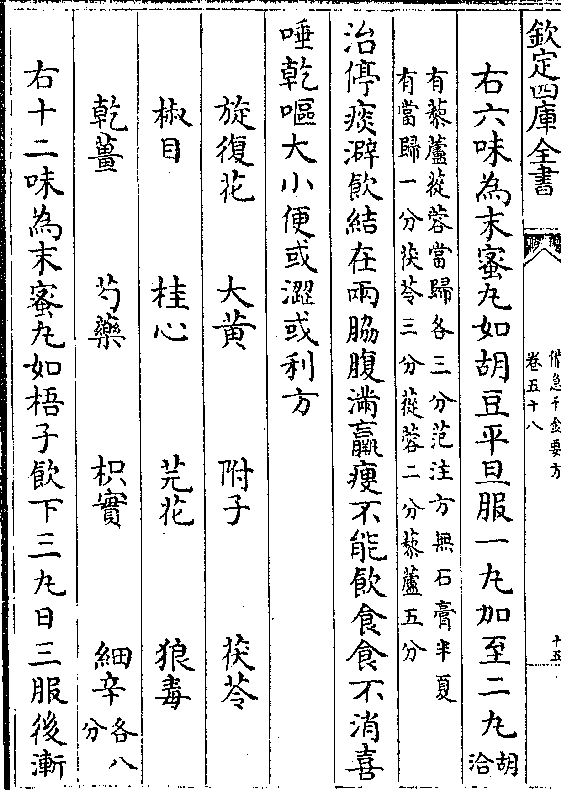 欽定四庫全書
備急千金要方
卷五十八
十五
右六味為末蜜丸如胡豆平旦服一丸加至二丸胡洽
有藜蘆蓯蓉當歸各三分范汪方無石膏半夏
有當歸一分茯苓三分蓯蓉二分藜蘆五分
治停痰澼飲結在兩脇腹滿羸瘦不能飲食食不消喜
唾乾嘔大小便或澀或利方
旋復花 大黄 附子 茯苓
椒目 桂心 芫花 狼毒
乾薑 芍藥 枳實 細辛各八分
右十二味為末蜜丸如梧子飲下三丸日三服後漸